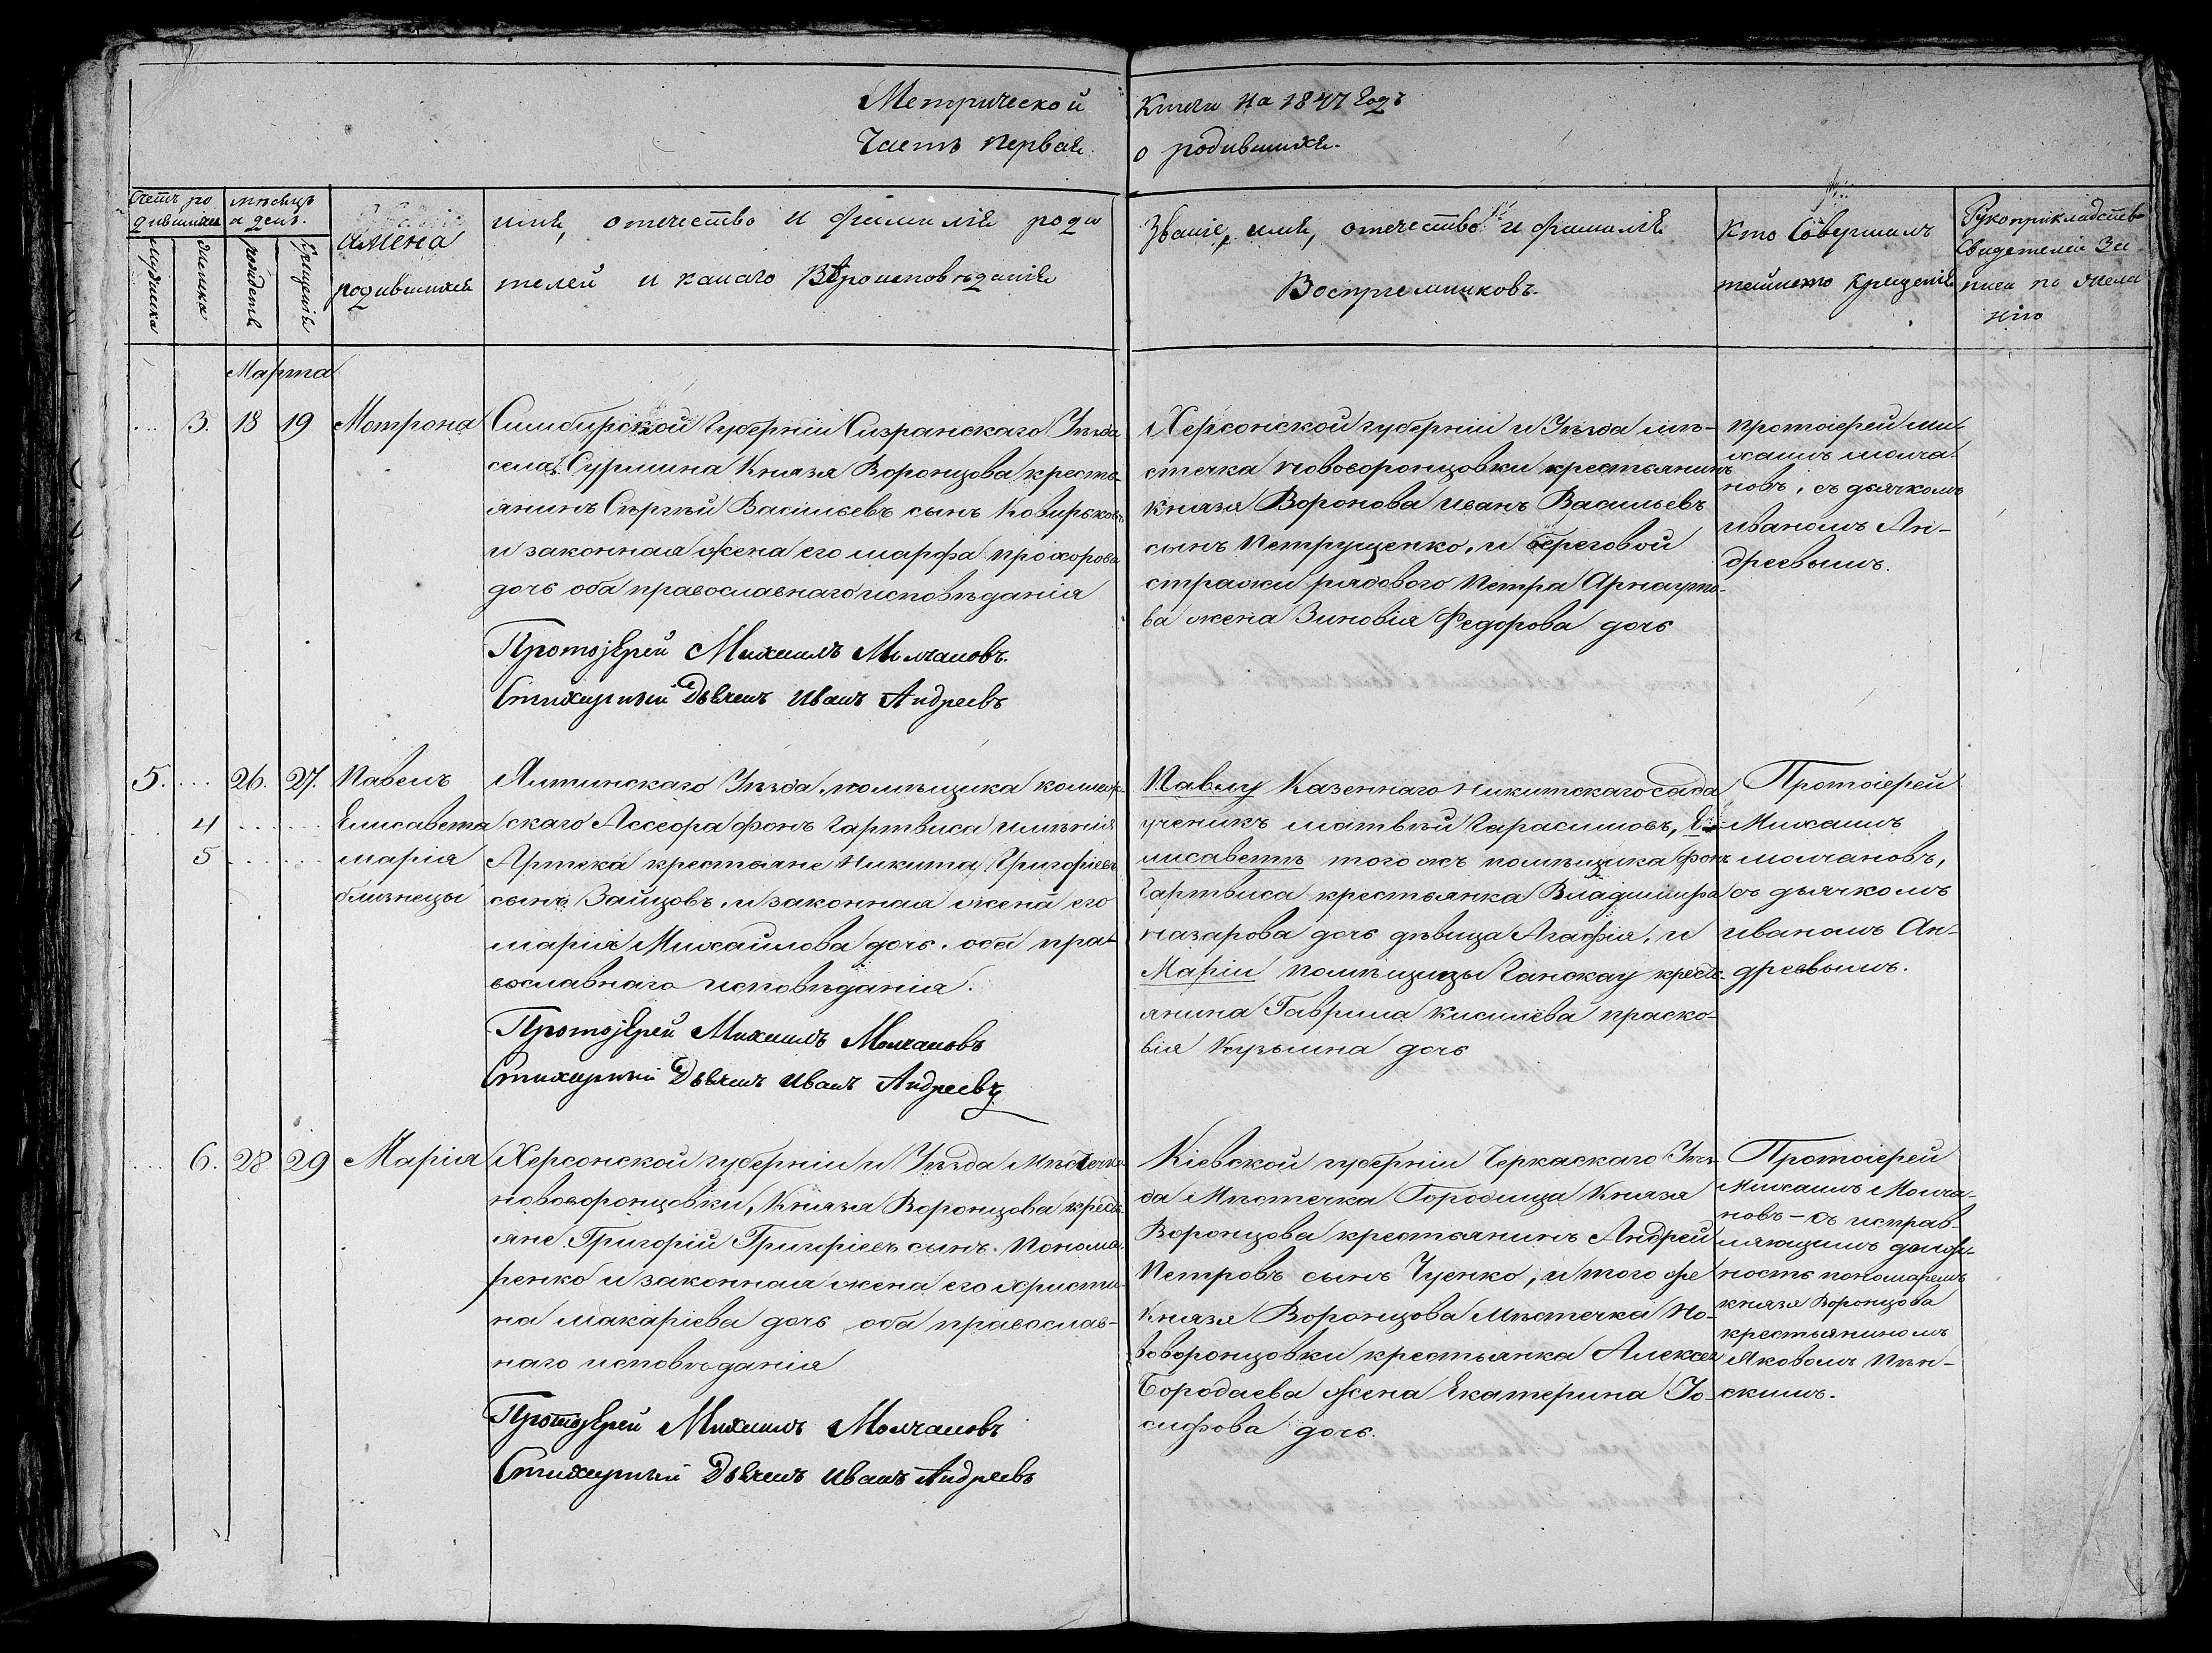 Метрической Книги на 1847 годъ
Часть первая о родившихся.
Счетъ ро
дившихся
мѣсяцъ
и день.
мужеска
женска
рожденія
крещенія
имена
родившихся
имя, отечество и фамилія роди
телей и какаго Вѣроисповѣданія
Званіе, имя, отечество и фамилія
Воспріемниковъ.
Кто Совершалъ
таинство крещенія
Рукоприкладство
свидетелей За
писи по жела
нію
Марта
3. 18 19 Мотрона
Симбирской Губерніи Сизранскаго Уѣзда
села Сурмина Князя Воронцова кресть-
янинъ Сергѣй Васильевъ сынъ
и законная жена его марфа прохорова
дочь оба православнаго исповѣданія
Протоіерей Михаилъ Молчановъ.
Стихарный Дьячекъ Иванъ Андреевъ
Херсонской губерніи и Уѣзда мѣ-
стечка нововоронцовки крестьянинъ
Князя Воронова иванъ Васильевъ
сынъ Петрущенко, и береговой
стражи рядового Петра Арнауто-
ва жена Зиновія Федорова дочь
протоіерей ми-
хаилъ молча-
новъ, съ дьячкомъ
иваномъ Ан-
дреевымъ.
5. 26. 27. Павелъ
4 Елисавета
5 марія
близнецы
Ялтинскаго Уѣзда, помѣщика коллеж-
скаго Ассеора фонъ Гартвиса имѣнія
Артека крестьяне Никита Григоріевъ
сынъ Зайцовъ, и законная жена его
марія Михайлова дочь. оба пра-
вославнаго исповѣданія.
Протоіерей Михаилъ Молчановъ
Стихарный Дьячекъ Иванъ Андреевъ
Павлу Казеннаго Никитскаго сада
ученикъ матвѣй Гарасимовъ, Е-
лисаветѣ того жъ помѣщика фон
Гартвиса крестьянка Владимира
назарова дочь дѣвица Агафія, и
Маріи помѣщицы Ганскау кресть-
янина Гаврила кисилёва праско-
вія дочь
Протоіерей
Михаилъ
молчановъ,
съ дьячкомъ
иваномъ Ан-
дреевымъ.
6. 28 29 Марія
Херсонской губерніи и Уѣзда Мѣстечка
нововоронцовки, Князя Воронцова кресть-
яне Григорій Григоріевъ сынъ Понома-
ренко и законная жена его христи-
на макаріева дочь оба православ-
наго исповѣданія
Протоіерей Михаилъ Молчановъ
Стихарный Дьячекъ Иванъ Андреевъ
Кіевской губерніи Черкаскаго Уѣз-
да Мѣстечка Городища Князя
Воронцова крестьянинъ Андрей
Петровъ сынъ Чуенко, и того же
Князя Воронцова Мѣстечка Но-
воворонцовки крестьянка Алексея
Бородаева жена Екатерина Іо-
сифова дочь.
Протоіерей
Михаилъ Молча-
новъ - съ исправ-
ляющимъ долж-
ность пономаремъ
князя Воронцова
крестьяниномъ
Яковомъ Пѣн-
скимъ.